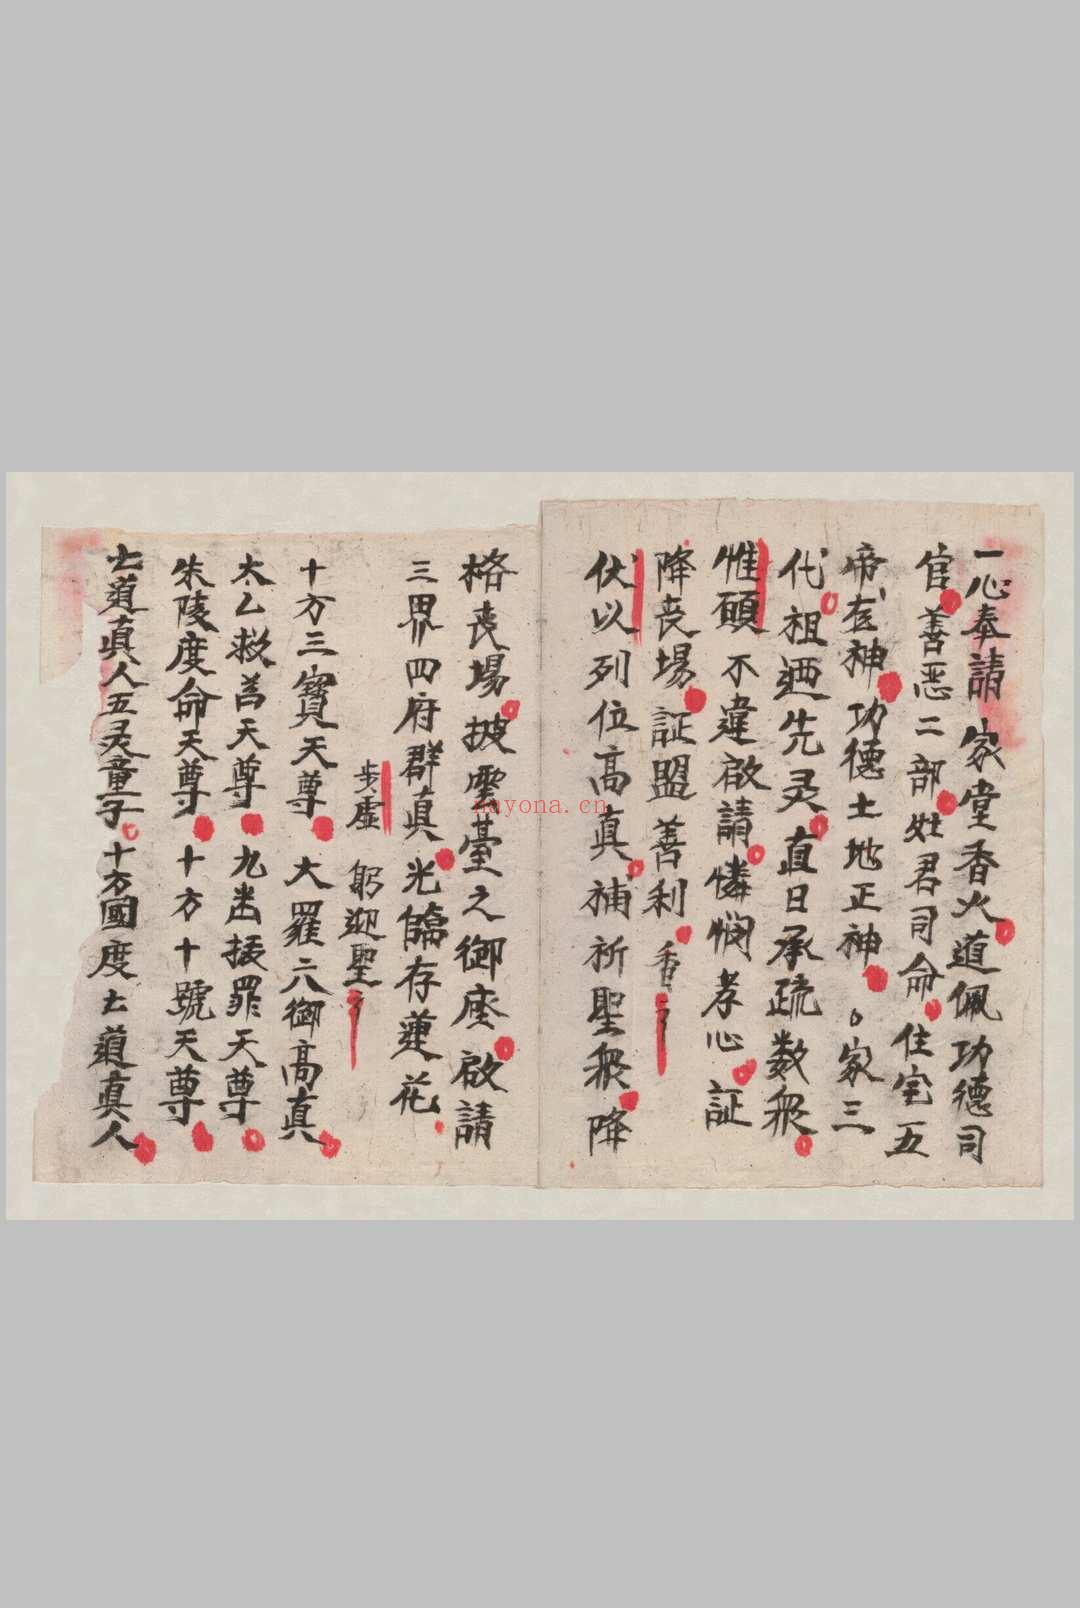 一心奉請 家堂香火道佩功德司
官善恶二部灶君司命住宅五
帝神功德土地正神家三
代祖迺先灵直日承疏数衆
惟願不違啟請憐憫孝心証
降丧場証盟善利 香
伏以列位高真補祈聖衆降
格丧場披雲臺之御座啟請
三界四府群真光臨存蓮花
步虛 躬迎聖
十方三寳天尊大羅六御高真
太乙救苦天尊九幽拔罪天尊
朱陵度命天尊十方十號天尊
士道真人五灵童子十方國度士道真人
nayona.cn